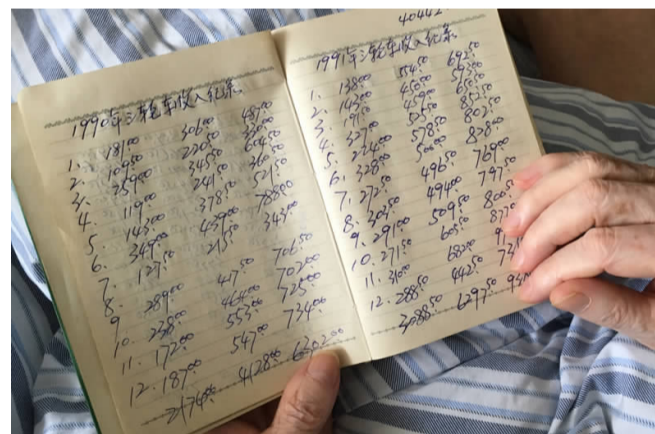 1990年三轮车收入纪录.
1. 181.00 306.00 487.00
2. 109.50 220.50 330.00
3. 259.00 345.50 604.50
4. 119.00 241.50 360.50
5. 143.00 378.50 521.50
6. 349.00 439.00 788.00
7. 127.50 215.50 343.00
8.
9. 289.00 417.50 706.50
10. 238.00 464.00 702.00
11. 172.00 553.00 725.00
12. 187.00 547.00 734.00
2174.00 4128.00 6302.00
40442
1991年三轮车收入纪录.
1. 138.00 554.50 692.50
2. 143.00 450.00 593.00
3. 191.50 459.00 650.50
4. 327.00 525.50 852.50
5. 224.00 578.50 802.50
6. 328.00 500.00 828.00
7. 272.50 496.50 769.00
8. 303.50 494.00 797.50
9. 291.00 509.50 800.50
10. 271.50 605.50
11. 310.00 682.00
12. 288.50 442.50
3088.50 6297.50